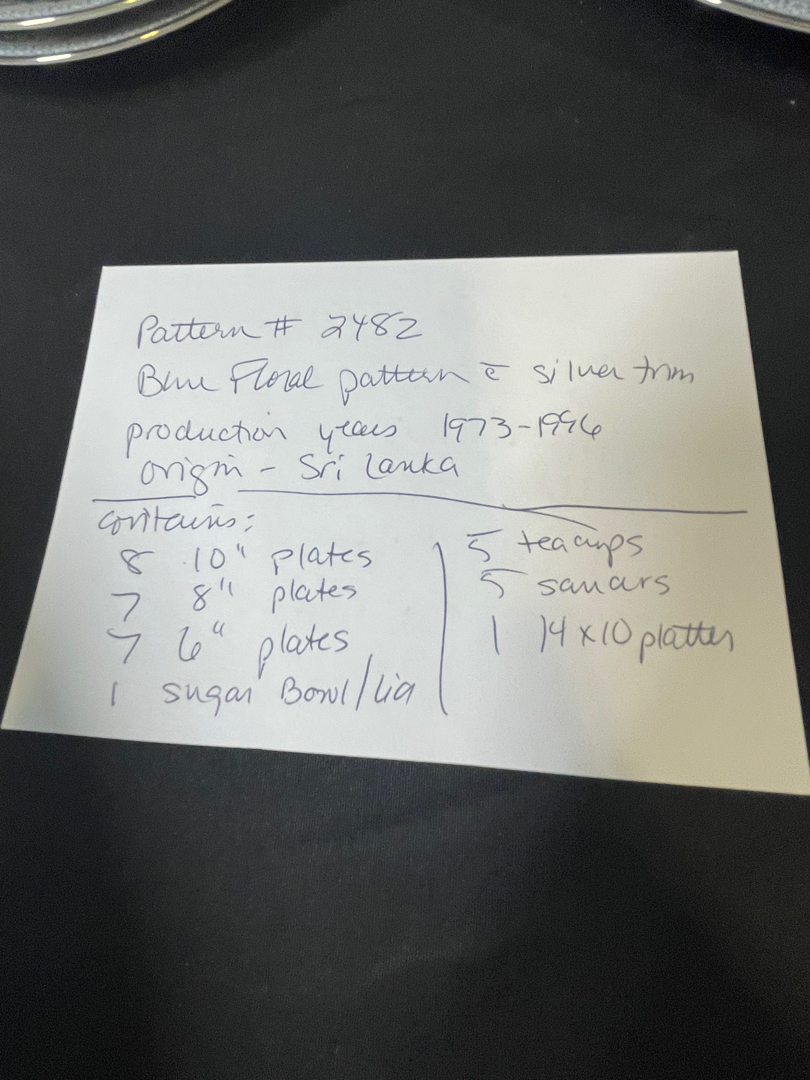 Pattern # 2482
Blue Floral pattern c̄ silver trim
production years 1973-1996
origin - Sri Lanka
contains:
8 10" plates
7 8" plates
7 6" plates
1 sugar Bowl/Lid
5 teacups
5 saucers
1 14 x 10 platter